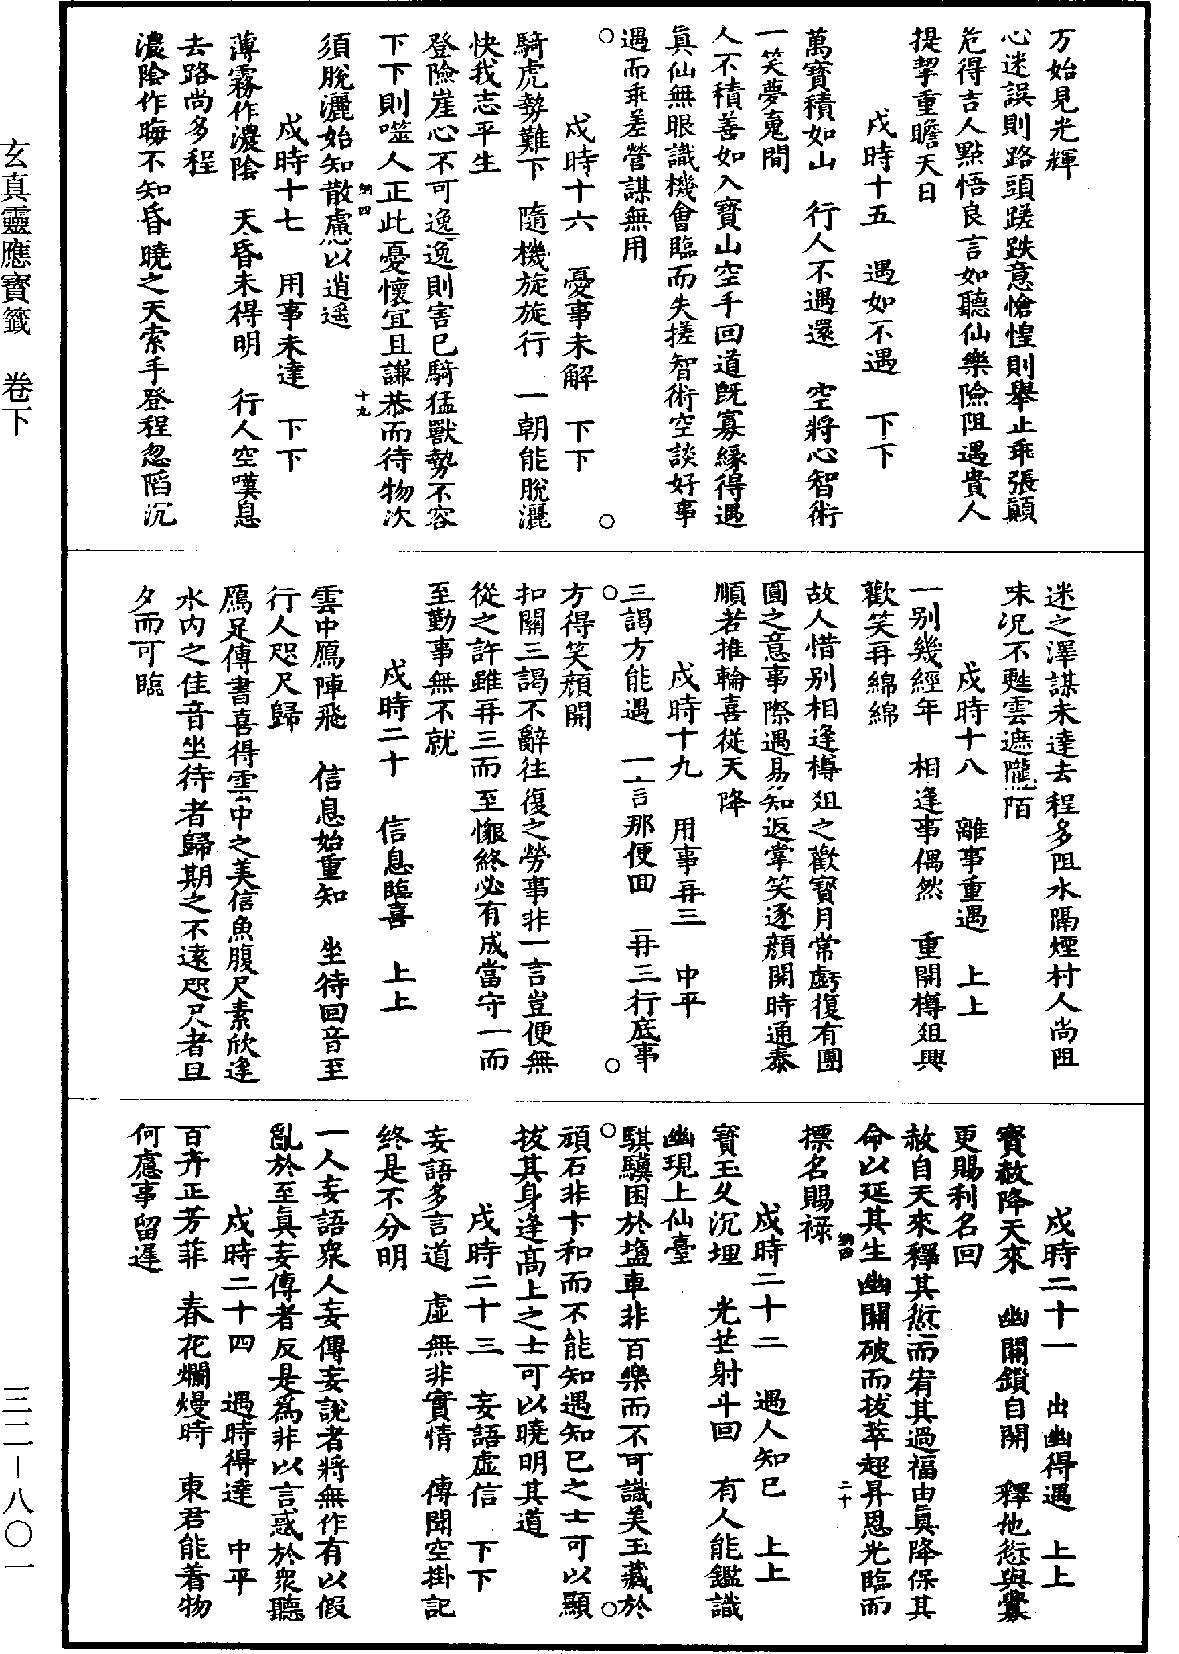 万始見光輝
心迷誤則路頭蹉跌意愴惶則舉止乖張顛
危得吉人點悟良言如聽仙樂險阻遇貴人
提挈重瞻天日
戌時十五　遇如不遇　下下
萬寶積如山　行人不遇還　空將心智術
一笑夢䰟間
人不積善如入寶山空手回道旣寡緣得遇
眞仙無眼識機會臨而失搓智術空談好事
遇而乖差營謀無用
戌時十六　憂事未解　下下
騎虎勢難下　隨機旋旋行　一朝能脫灑
快我志平生
登險崖心不可逸逸則害已騎猛獸勢不容
下下則噬人正此憂懷宜且謙恭而待物次
須脫灑始知散慮以逍遥
戌時十七　用事未達　下下
薄霧作濃陰　天昏未得明　行人空嘆息
去路尚多程
濃陰作晦不知昏曉之天索手登程忽陷沉
迷之澤謀未達去程多阻水隔煙村人尚阻
未况不甦雲遮隴陌
戌時十八　離事重遇　上上
一别幾經年　相逢事偶然　重開樽俎興
歡笑再綿綿
故人惜别相逢樽俎之歡寳月常虧復有團
圓之意事際遇易知返掌笑逐顏開時通泰
順若推輪喜從天降
戌時十九　用事再三　中平
三謁方能遇　一言那便回　再三行底事
方得笑顏開
扣關三謁不辭往復之勞事非一言豈便無
從之許雖再三而至懶終必有成當守一而
至勤事無不就
戌時二十　信息臨喜　上上
雲中鴈陣飛　信息始重知　坐待回音至
行人咫尺歸
鴈足傳書喜得雲中之美信魚腹尺素欣逢
水内之佳音坐待者歸期之不遠咫尺者旦
夕而可臨
戌時二十一　出幽得遇　上上
寶赦降天來　幽關鎖自開　釋他愆與釁
更賜利名回
赦自天來釋其愆而宥其過福由眞降保其
命以延其生幽關破而拔萃超昇恩光臨而
摽名賜禄
戌時二十二　遇人知已　上上
寶玉久沉埋　光芒射斗回　有人能鑑識
幽現上仙臺
騏驥困於鹽車非百樂而不可識美玉藏於
頑石非卞和而不能知遇知已之士可以顯
拔其身逢高上之士可以曉明其道
戌時二十三　妄語虛信　下下
妄語多言道　虛無非實情　傳聞空掛記
終是不分明
一人妄語眾人妄傳妄說者將無作有以假
亂於至眞妄傳者反是爲非以言惑於衆聽
戌時二十四　遇時得達　中平
百卉正芳菲　春花爛熳時　東君能着物
何慮事留遲
納四
十九
納四
二十
玄真靈應寶籤　卷下
三二－八〇一